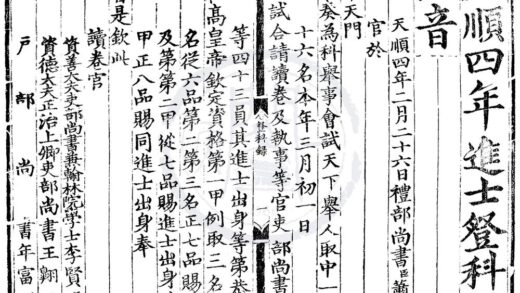 順四年進士登科
音
天順四年二月二十六日禮部尚書臣蕭
官於
天門
奏為科舉事會試天下舉人取中一
十六名本年三月初一日
試合請讀卷及執事等官吏部尚書
登科録 一
等四十三員其進士出身等第恭
高皇帝欽定資格第一甲例取三名
名從六品第二第三名正七品賜
及第第二甲從七品賜進士出身
甲正八品賜同進士出身奉
旨是欽此
讀卷官
資善大夫吏部尚書兼翰林院學士李賢
資德大夫正治上卿吏部尚書王翱
戶部尚書年富